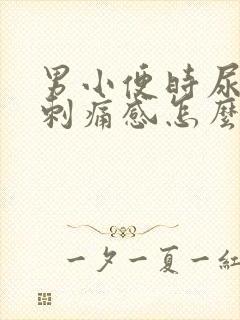 男小便时尿
刺痛感怎麼
一夕一夏一紅